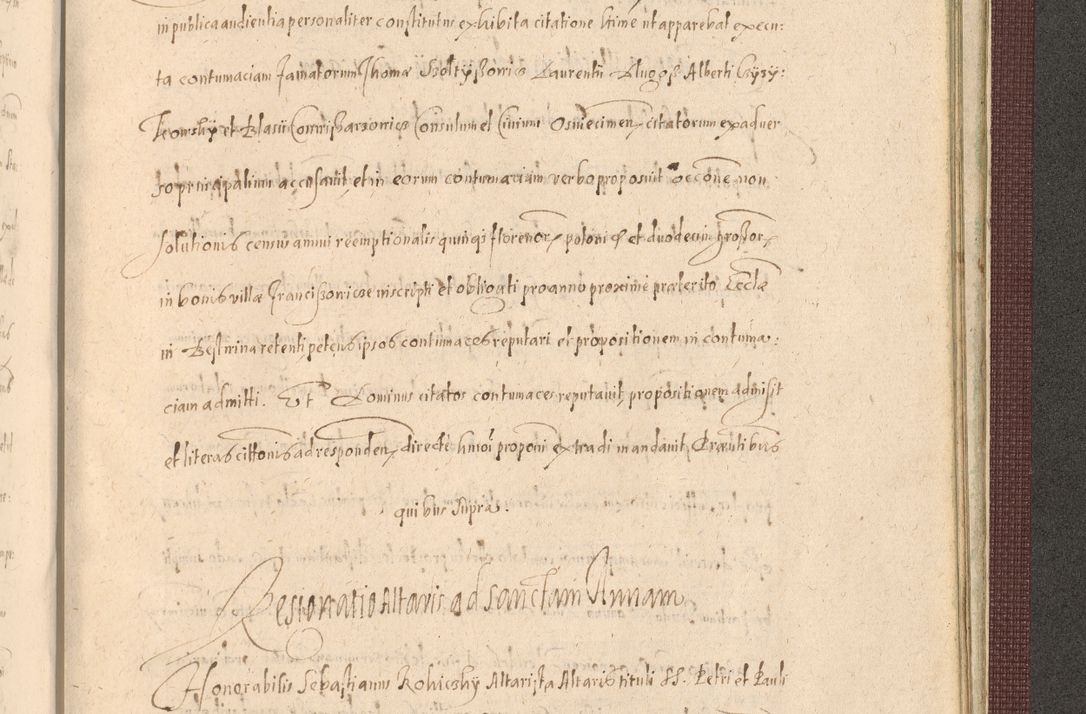 in publica audientia personaliter constitutus exhibita citatione hinc ut apparebat execu:
ta contumaciam famatorum Thomæ Szoltyszowic Laurentii Dlugosz Alberti Czyzy:
kowsky et Blasii Consulum et Civium Osviecimen citatorum ex adver
so principalium accusavit et in eorum contumaciam verbo proposuit occõne non
solutionis census annui reemptionalis quinqz florenor poloni et duodecim grossor
in bonis villæ Franciszowicze inscripti et obligati pro anno proxime præterito Ecclæ
in Bestwina retenti petens ipsos contumaces reputari et propositionem in contuma:
ciam admitti. Et Dominus citatos contumaces reputavit, propositionem admisit
et literas cittonis ad responden directe hmoi proponi extradi mandavit, Præntibus
quibus supra.
Resignatio Altaris ad sanctam Annam
Honorabilis Sebastianus Rohiczky Altarista Altaris tituli SS. Petri et Pauli